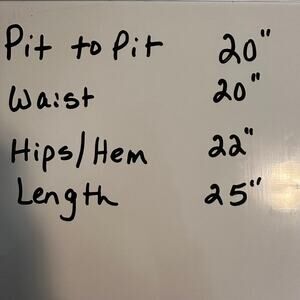 Pit to Pit 20"
Waist 20"
Hips/Hem 22"
Length 25"